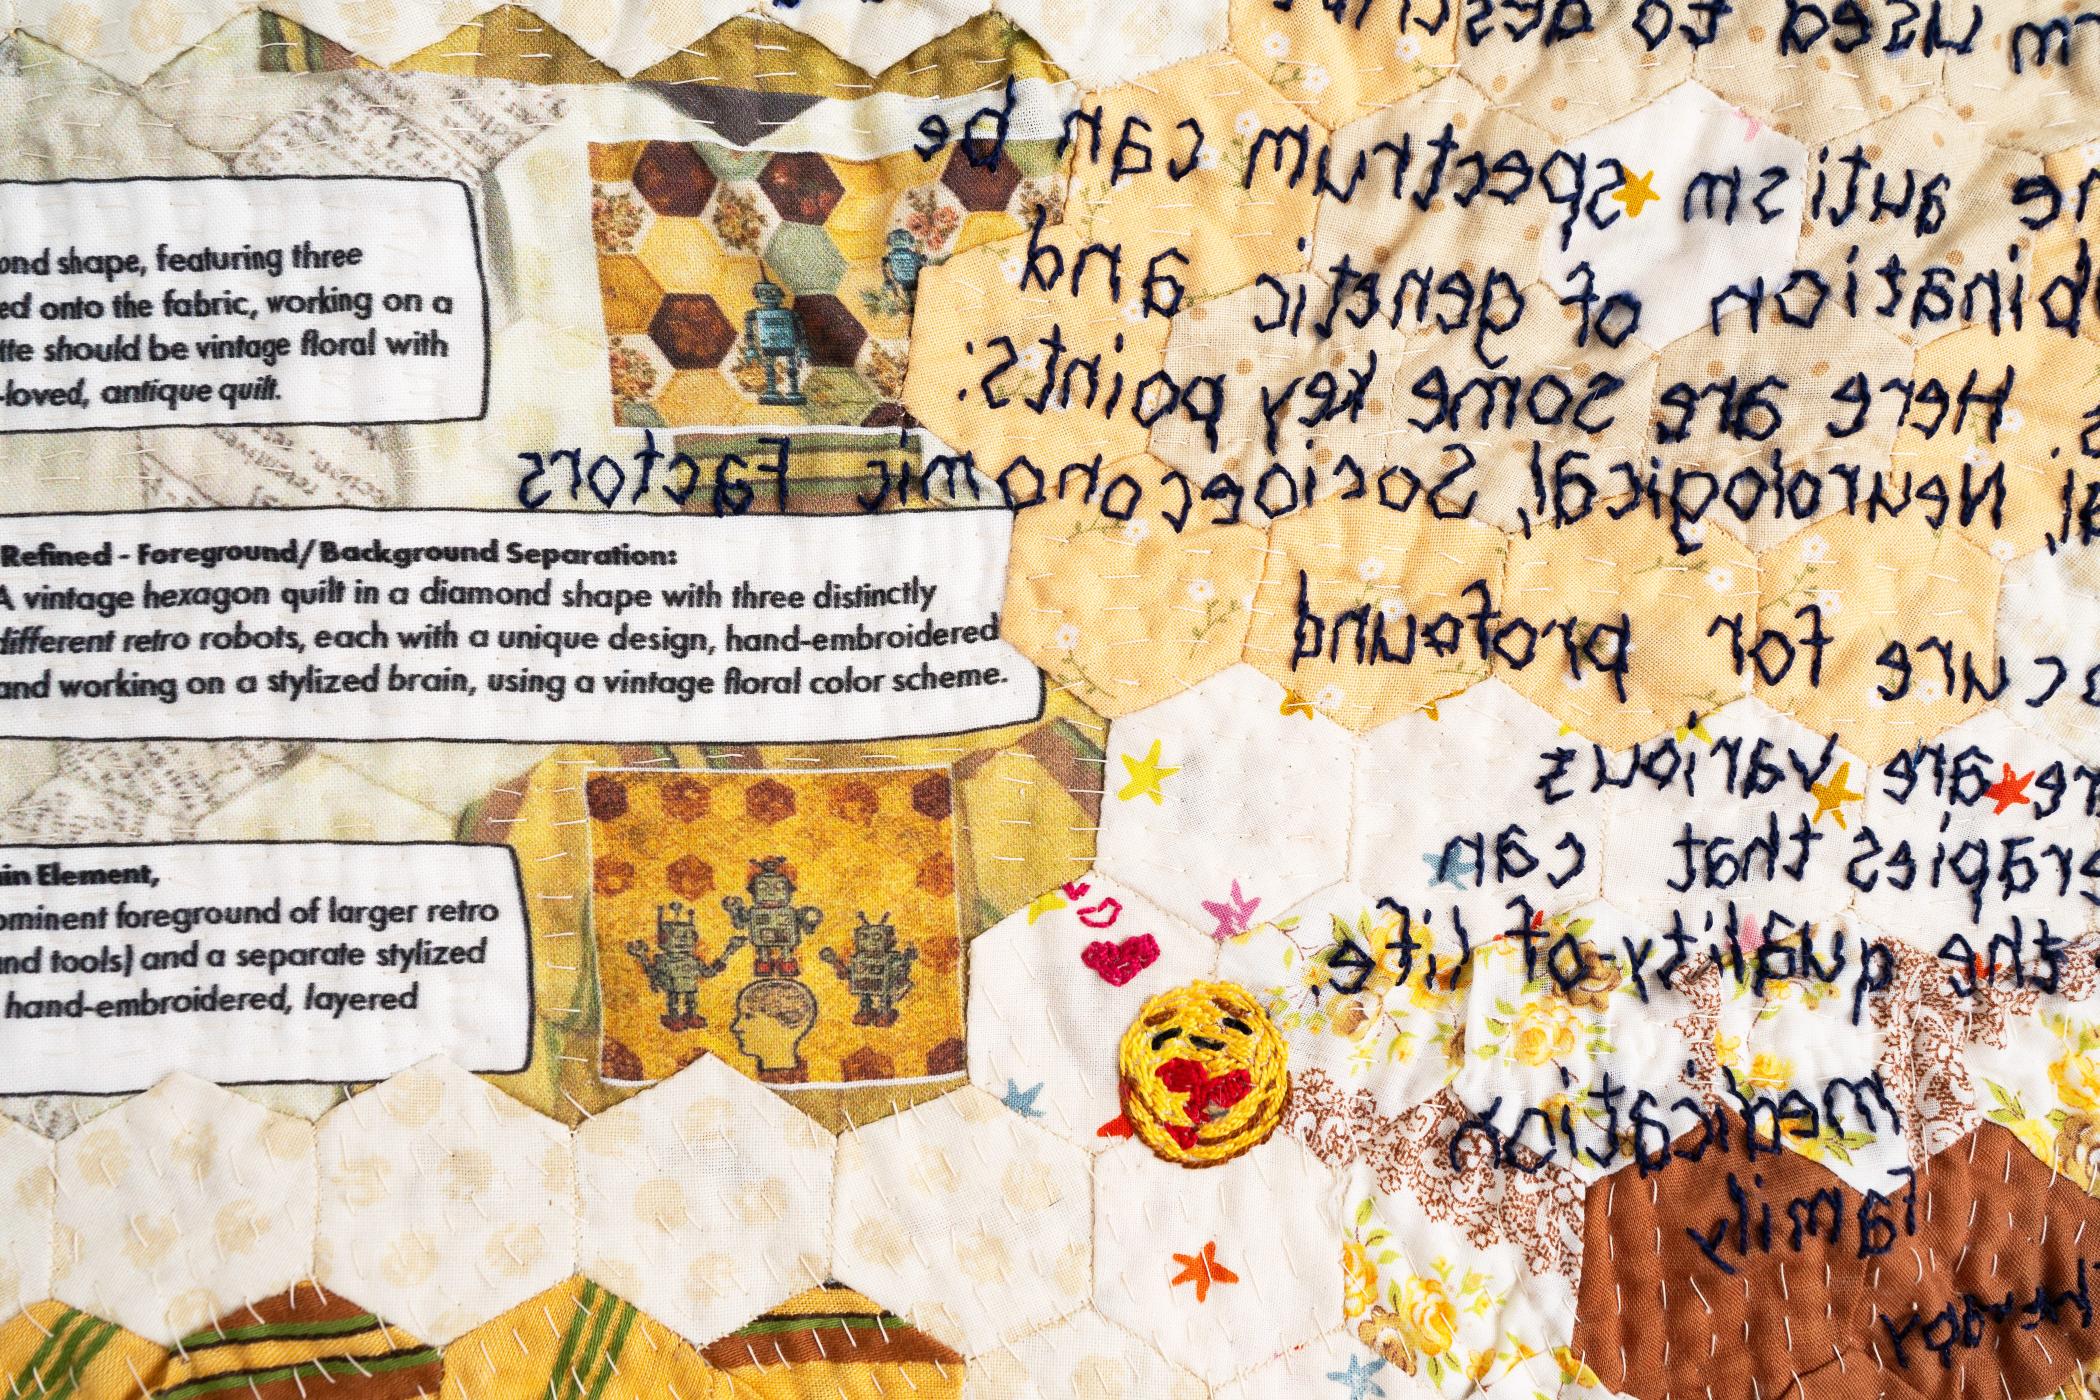 ond shape, featuring three
ed onto the fabric, working on a
tte should be vintage floral with
-loved, antique quilt.
Refined - Foreground/Background Separation:
A vintage hexagon quilt in a diamond shape with three distinctly
different retro robots, each with a unique design, hand-embroidered
and working on a stylized brain, using a vintage floral color scheme.
in Element,
ominent foreground of larger retro
nd tools) and a separate stylized
hand-embroidered, layered
m used to describe
re autism spectrum can be
bination of genetic and
s. Here are some key points:
l, Neurological, Socioeconomic Factors
cure for profound
re are variouz
erapies that can
the quality-of life.
medication
family